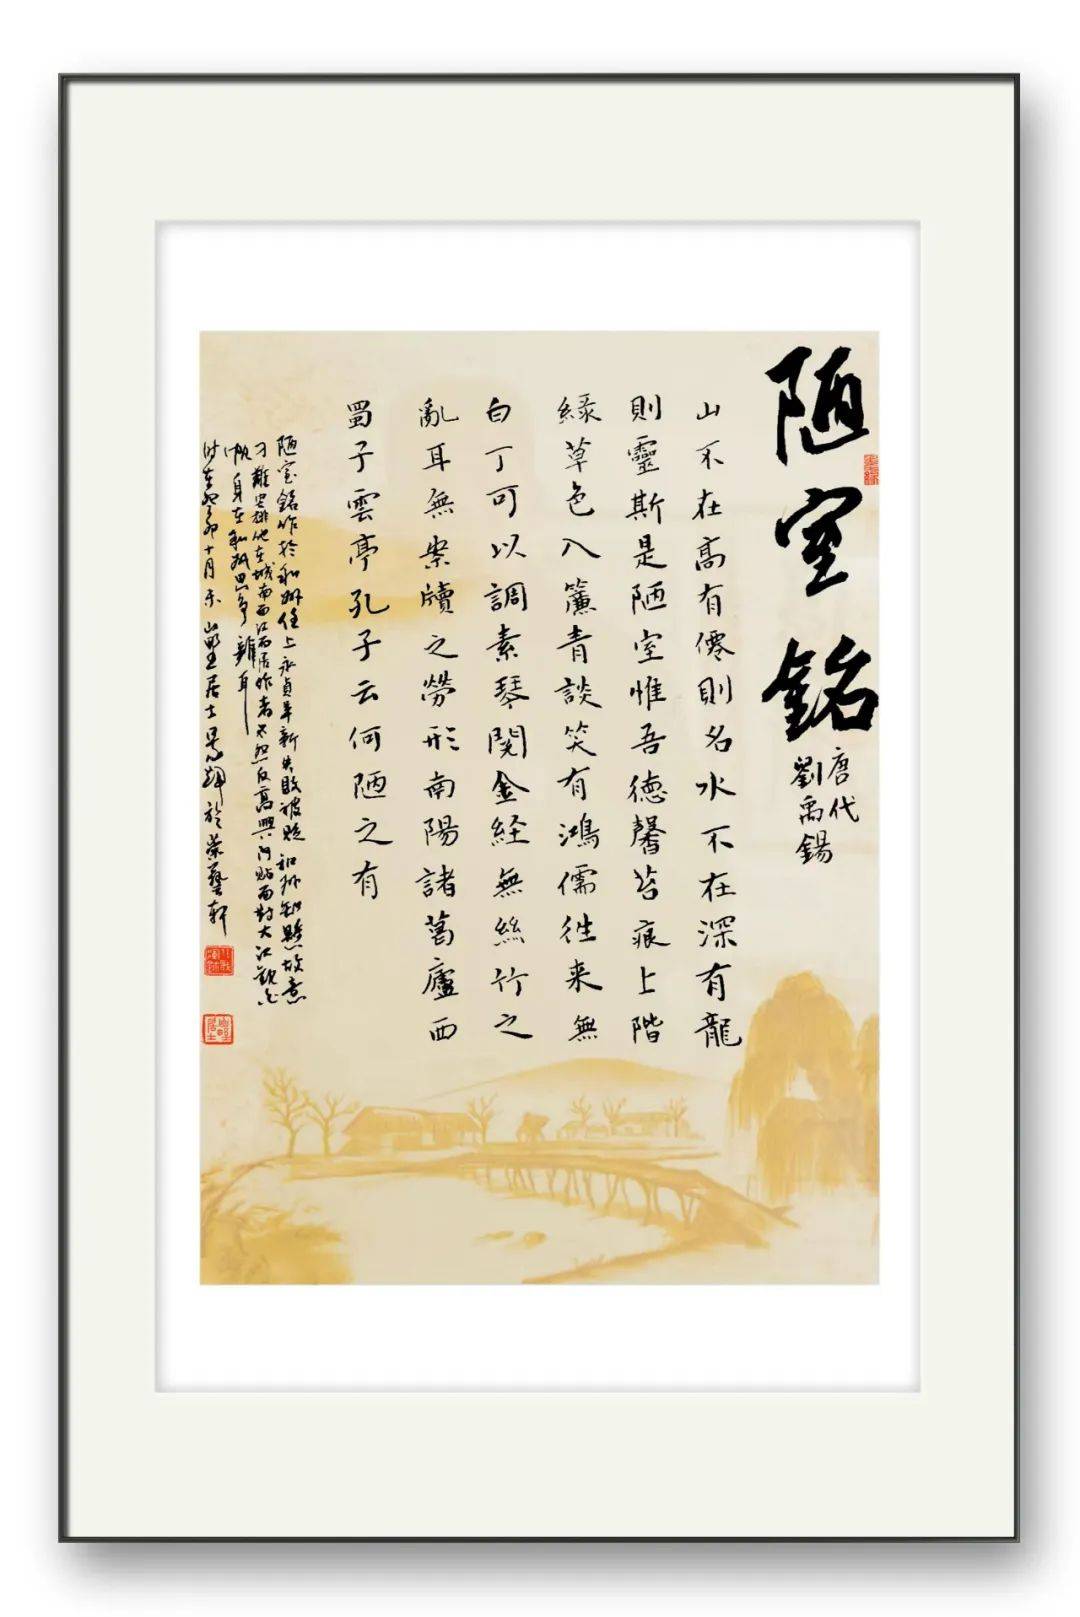 陋室銘
唐代
劉禹錫
山不在高有僊則名水不在深有龍
則靈斯是陋室惟吾德馨苔痕上階
緑草色入簾青談笑有鴻儒往来無
白丁可以調素琴閲金経無絲竹之
亂耳無案牘之勞形南陽諸葛廬西
蜀子雲亭孔子云何陋之有
陋室銘作於和州任上永貞革新失敗被貶和州知縣故意
刁難安排他在城南面江而居作者不怨反高興門貼面對大江觀白
帆身在和州思爭辯耳
時在癸卯十月末山野居士輝於榮藝軒